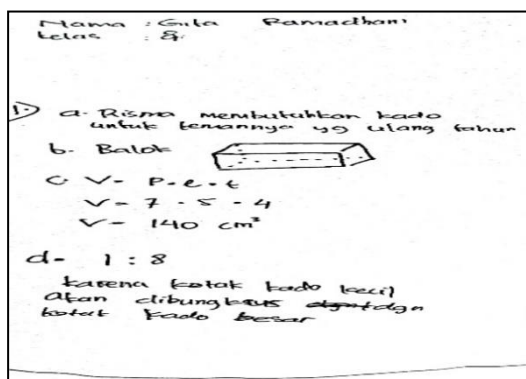 Nama : Gita Ramadhani
kelas : 8
1. a. Risma membutuhkan kado
untuk temannya yg ulang tahun
b. Balok
c. V = p . l . t
V = 7 . 5 . 4
V = 140 cm³
d = 1 : 8
karena kotak kado kecil
akan dibungkus dgn
kotak kado besar